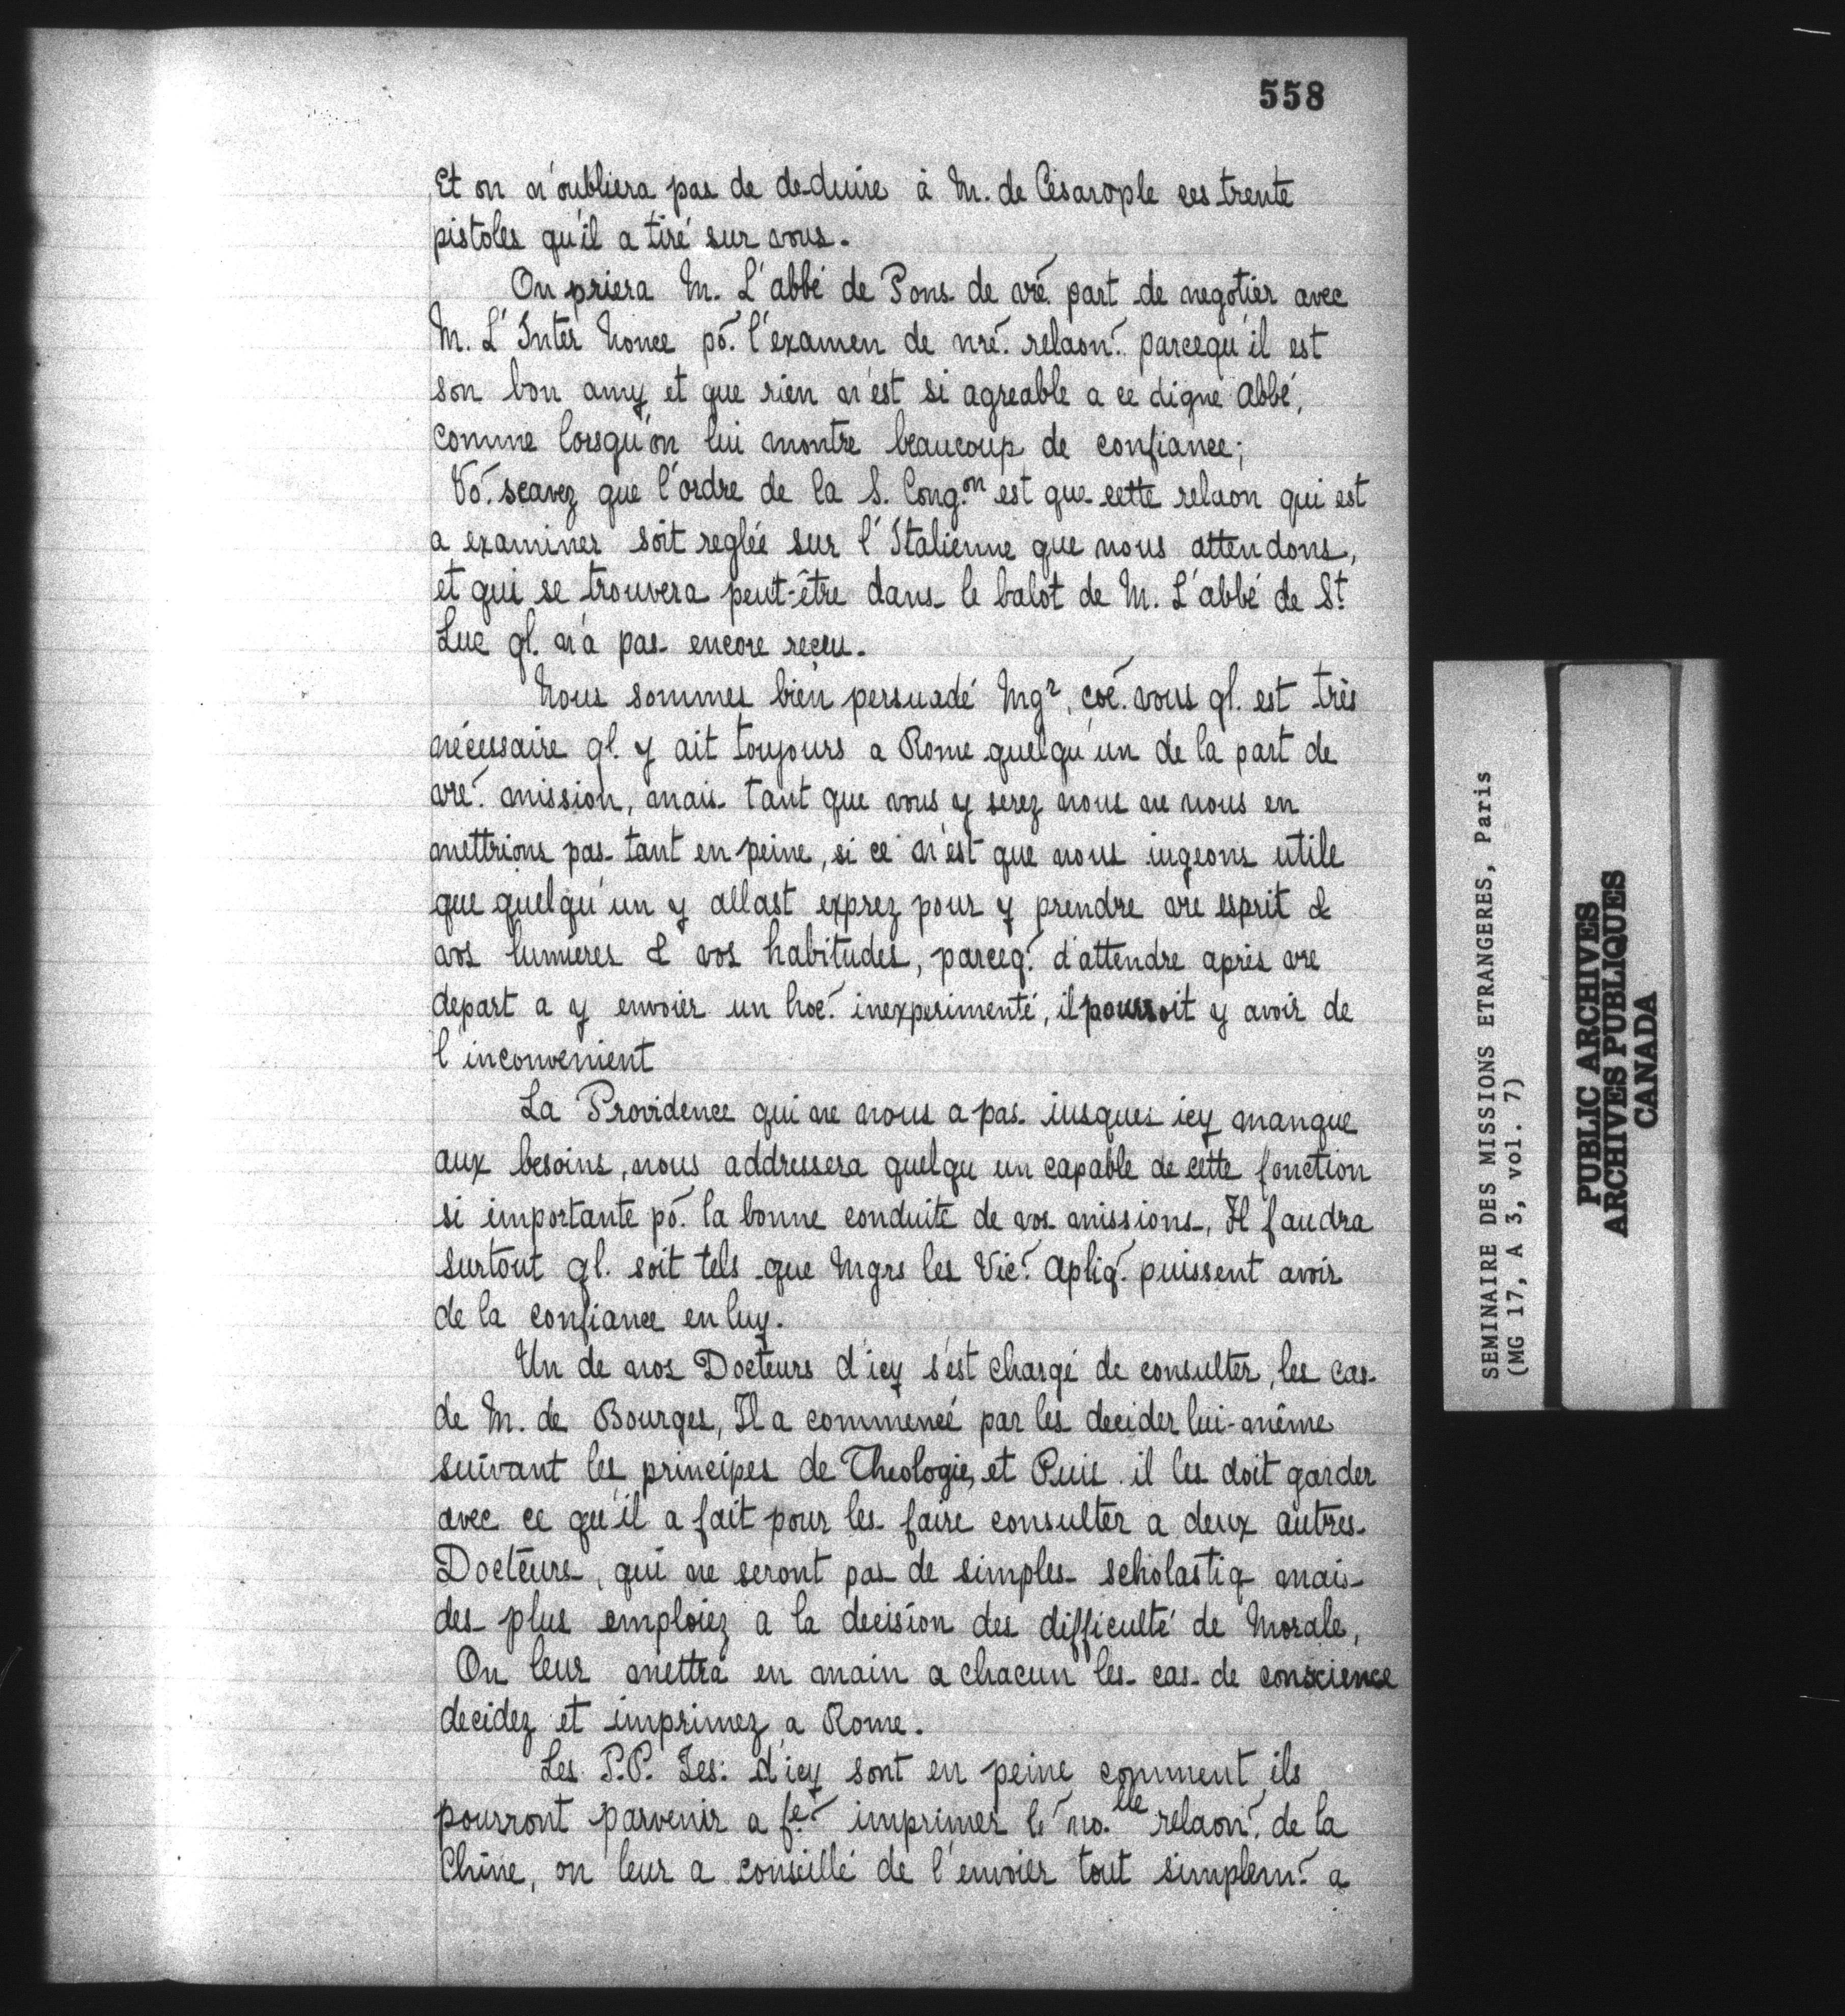 558
Et on n'oubliera pas de deduire à M. de Cesarople ces trente
pistoles qu'il a tiré sur vous.
On priera M. L'abbé de Pons de vré part de negotier avec
M. L'Inter Nonce pō. l'examen de nrē. relaōn. parcequ'il est
son bon amy et que rien n'est si agreable a ce digne Abbé,
comme lorsqu'on lui montre beaucoup de confiance;
Vō. scavez que l'ordre de la S. Cong.on est que cette relaon qui est
a examiner soit reglée sur l'Italienne que nous attendons,
et qui se trouvera peut-être dans le balot de M. L'abbé de St.
Luc ql. n'a pas encore reçeu.
Nous sommes bien persuadé Mgr, cōe. vous ql. est très
nécessaire ql. y ait toujours a Rome quelqu'un de la part de
vrē. mission, mais tant que vous y serez nous ne nous en
mettrions pas tant en peine, si ce n'est que nous iugeons utile
que quelqu'un y allast exprez pour y prendre vre esprit &
vos lumieres & vos habitudes, parceq. d'attendre après vre
depart a y envoier un hoē. inexperimenté, il pourroit y avoir de
l'inconvenient
La Providence qui ne nous a pas iusques icy manque
aux besoins, nous addressera quelqu un capable de cette fonction
si importante pō. la bonne conduite de vos missions, Il faudra
surtout ql. soit tels que Mgrs les Vic. Apliq. puissent avoir
de la confiance en luy.
Un de nos Docteurs d'icy s'est chargé de consulter, les cas
de M. de Bourges, Il a commencé par les decider lui-même
suivant les principes de Theologie, et Puis il les doit garder
avec ce qu'il a fait pour les faire consulter a deux autres
Docteurs, qui ne seront pas de simples scholastiq mais
des plus emploiez a la decision des difficulté de Morale,
On leur mettra en main a chacun les cas de conscience
decidez et imprimez a Rome.
Les P.P. Jes: d'icy sont en peine comment ils
pourront parvenir a fe. imprimer le no.lle relaōn. de la
Chine, on leur a conseillé de l'envoier tout simplem. a
SEMINAIRE DES MISSIONS ETRANGERES, Paris
(MG 17, A 3, vol. 7)
PUBLIC ARCHIVES
ARCHIVES PUBLIQUES
CANADA